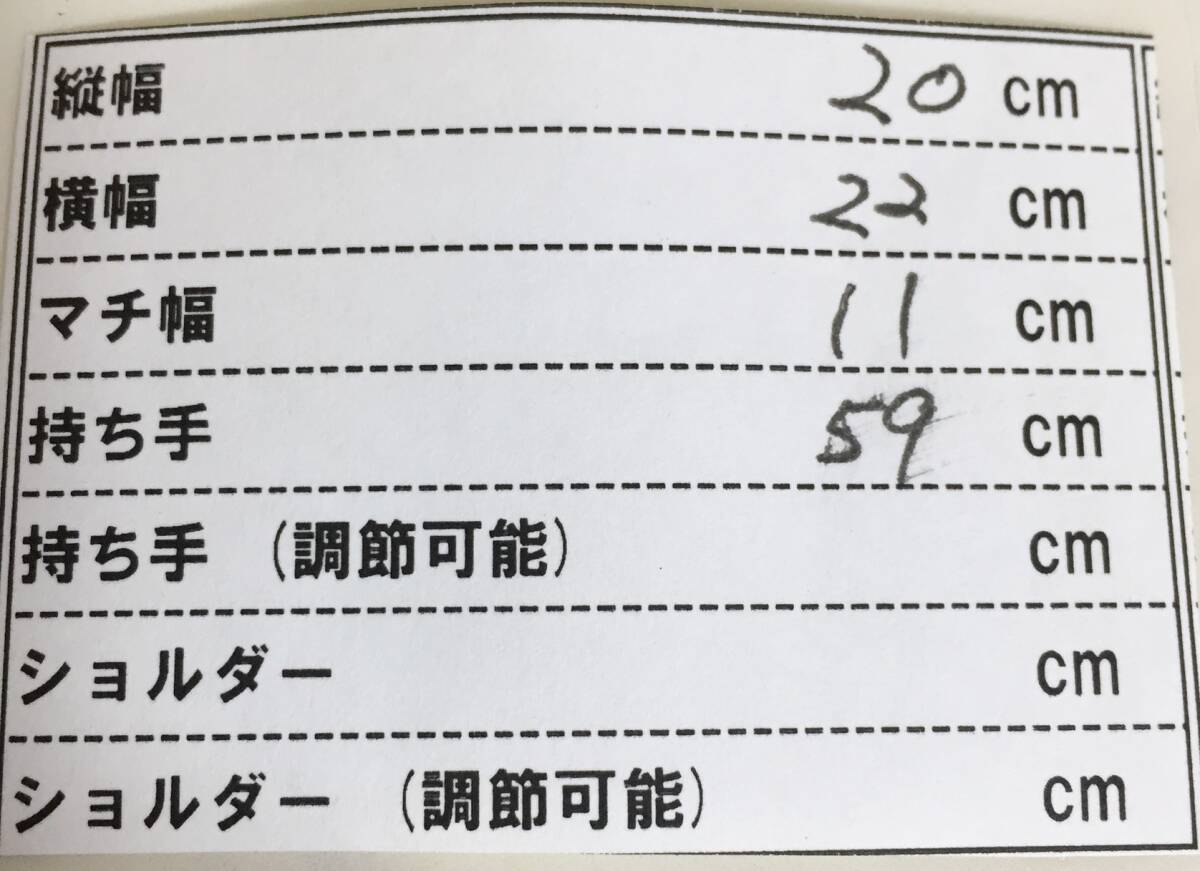 縦幅 20 cm
横幅 22 cm
マチ幅 11 cm
持ち手 59 cm
持ち手 (調節可能) cm
ショルダー cm
ショルダー (調節可能) cm